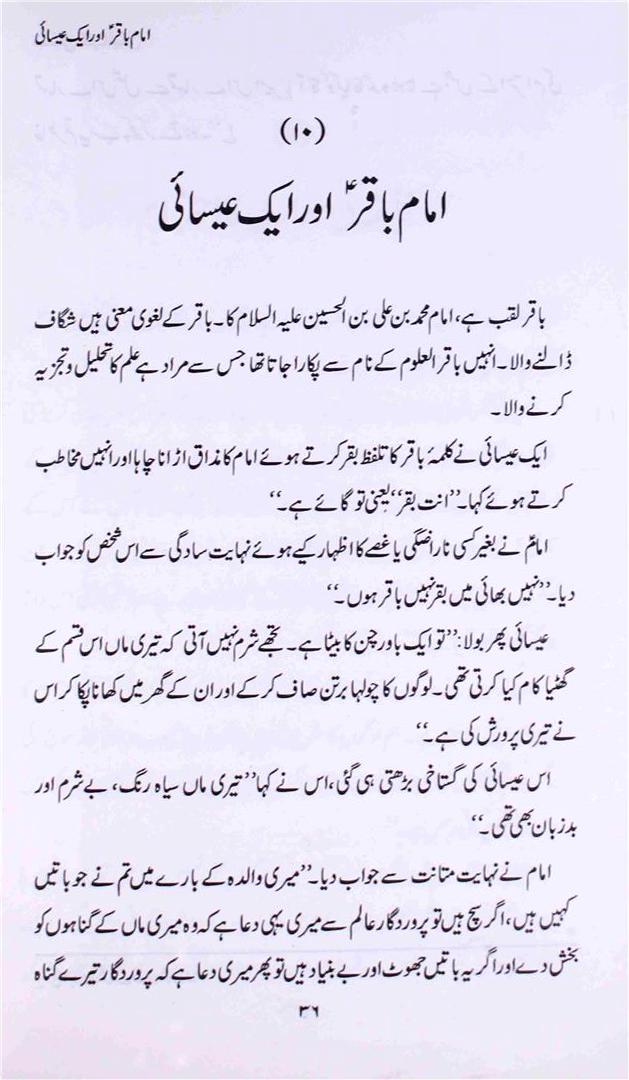 امام باقرؑ اور ایک عیسائی
(۱۰)
امام باقرؑ اور ایک عیسائی
باقر لقب ہے، امام محمد بن علی بن الحسین علیہ السلام کا۔ باقر کے لغوی معنی ہیں شگاف
ڈالنے والا۔ انہیں باقر العلوم کے نام سے پکارا جاتا تھا جس سے مراد ہے علم کا تحلیل و تجزیہ
کرنے والا۔
ایک عیسائی نے کلمۂ باقر کا تلفظ بقر کرتے ہوئے امام کا مذاق اڑانا چاہا اور انہیں مخاطب
کرتے ہوئے کہا۔ ”انت بقر“ یعنی تو گائے ہے۔“
امامؑ نے بغیر کسی ناراضگی یا غصے کا اظہار کیے ہوئے نہایت سادگی سے اس شخص کو جواب
دیا۔ ”نہیں بھائی میں بقر نہیں باقر ہوں۔“
عیسائی پھر بولا: ”تو ایک باورچن کا بیٹا ہے۔ تجھے شرم نہیں آتی کہ تیری ماں اس قسم کے
گھٹیا کام کیا کرتی تھی۔ لوگوں کا چولہا برتن صاف کر کے اور ان کے گھر میں کھانا پکا کر اس
نے تیری پرورش کی ہے۔“
اس عیسائی کی گستاخی بڑھتی ہی گئی، اس نے کہا ”تیری ماں سیاہ رنگ، بے شرم اور
بدزبان بھی تھی۔“
امام نے نہایت متانت سے جواب دیا۔ ”میری والدہ کے بارے میں تم نے جو باتیں
کہیں ہیں، اگر سچ ہیں تو پروردگار عالم سے میری یہی دعا ہے کہ وہ میری ماں کے گناہوں کو
بخش دے اور اگر یہ باتیں جھوٹ اور بے بنیاد ہیں تو پھر میری دعا ہے کہ پروردگار تیرے گناہ
۳۶